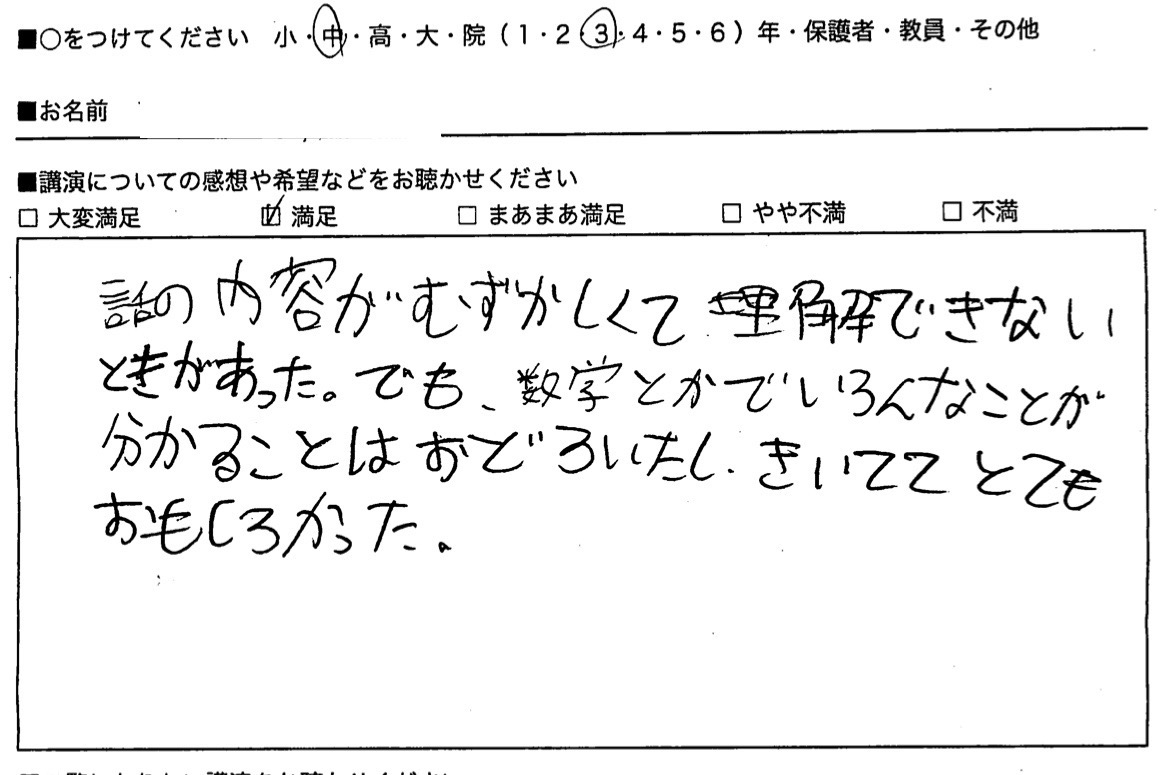 ■○をつけてください 小・中・高・大・院（1・2・3・4・5・6）年・保護者・教員・その他
■お名前
■講演についての感想や希望などをお聴かせください
□ 大変満足 ☑ 満足 □ まあまあ満足 □ やや不満 □ 不満
話の内容がむずかしくて理解できない
ときがあった。でも、数学とかでいろんなことが
分かることはおどろいたし、きいててとても
おもしろかった。